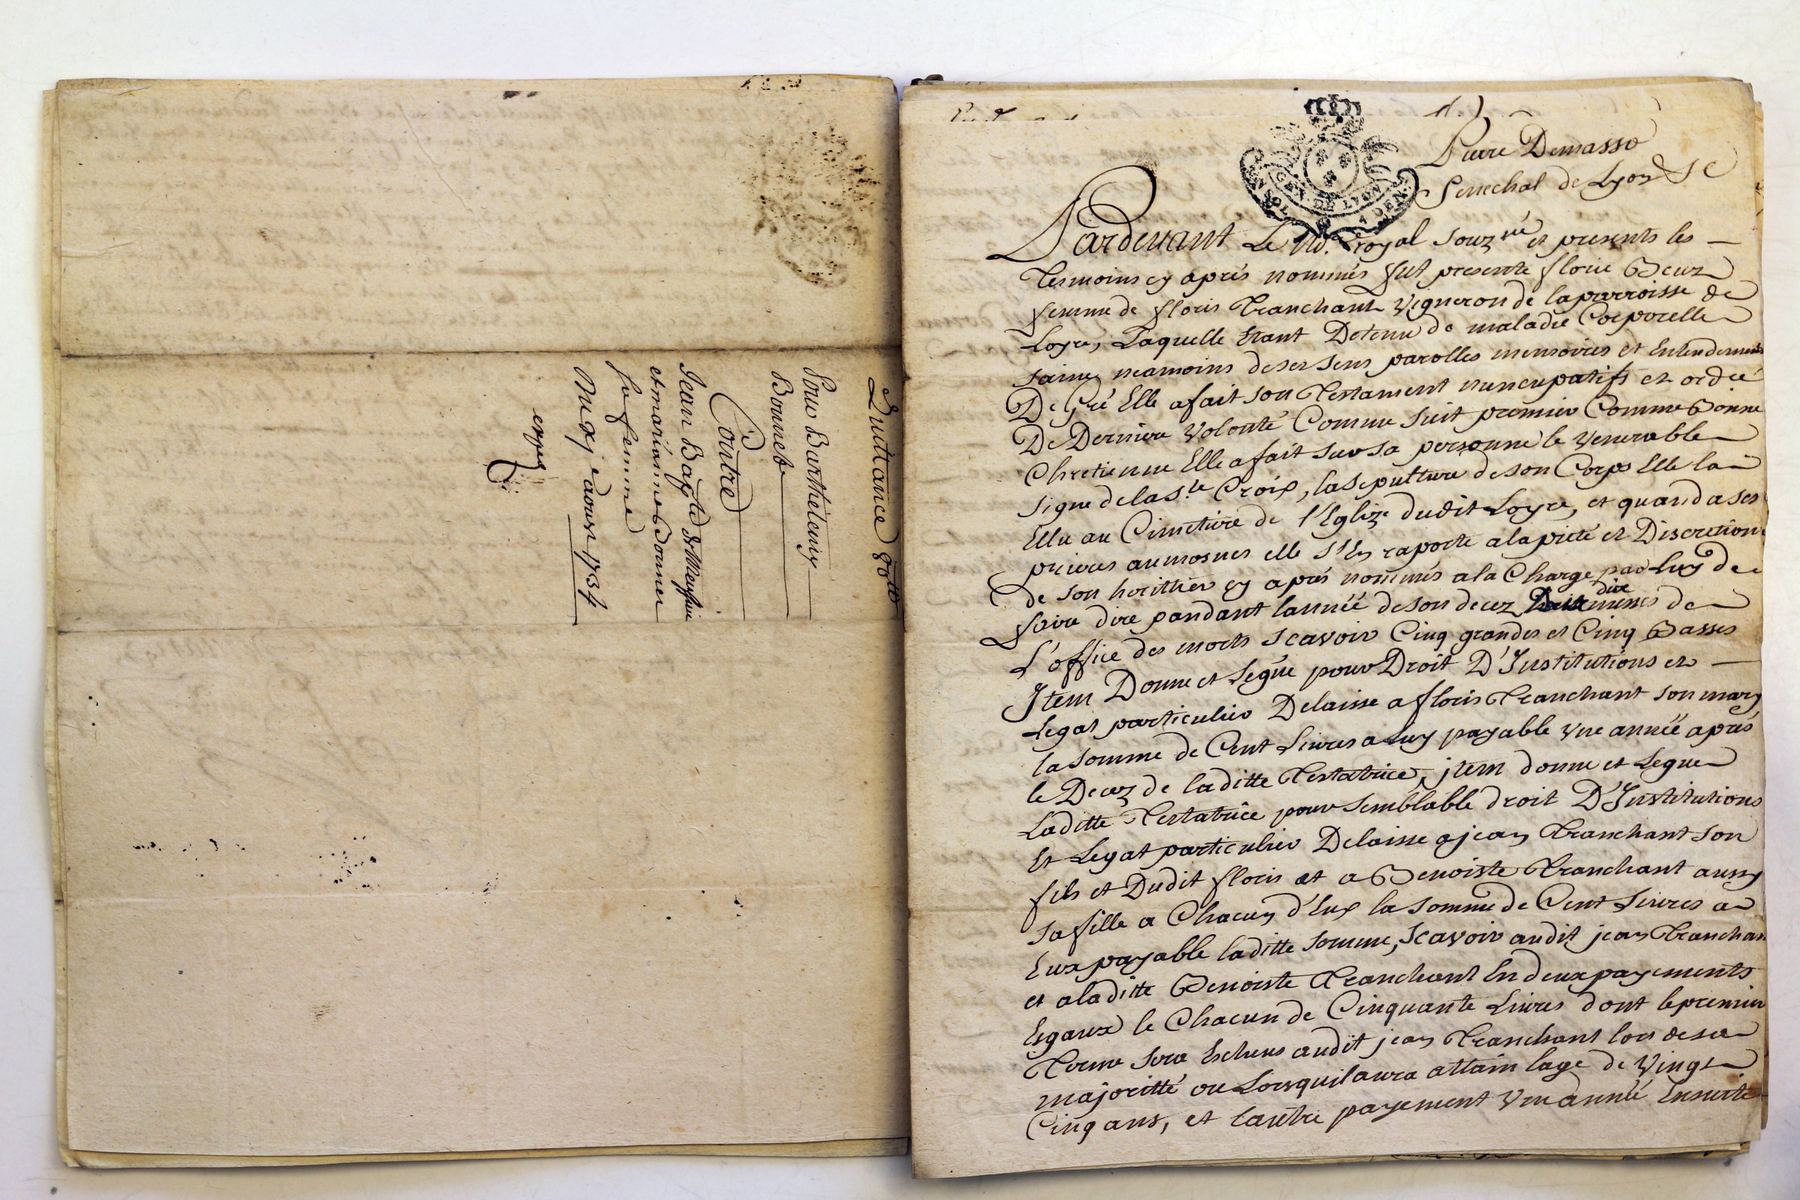 Quittance 80ᵗᵗ
Pour Barthelemy
Bonnet
Contre
Jean Bapte
et marianne bonnet
sa femme
Du xj e aoust 1734
exped
GEN DE LYON
SOL
4 DEN
Pierre Demasso
Senechal de Lyon
Pardevant Le No.re royal souz.né et presents les
tesmoins cy aprés nommés fut presente florie
femme de floris Tranchant vigneron de laparroisse de
Loyre, Laquelle Etant Detenue de maladie Corporelle
saine neamoins deses sens parolles memoires et Entendement
De Gré Elle afait son Testament nuncupatif et ordce
De Derniere Volonté Comme suit premier Comme bonne
Chretienne Elle afait sur sa personne le venerable
signe dela Ste Croix, la sepulture deson Corps Elle la
Ellu au Cimetiere de l'Eglize dudit Loyre, et quand a ses
prieres aumosnes elle s'En raporte alapieté et Discretion
de son heritier cy aprés nommés ala Charge par luy de
faire dire pandant lannéé deson decez dix messes de
L'office des morts scavoir Cinq grandes et Cinq basses
Item Donne et Legue pour Droit D'Institutions et
Legat particulier Delaisse a floris Tranchant son mary
la somme de Cent Livres a Luy payable Vne annéé aprés
le Decez de laditte Testatrice, jtem donne et Legue
Laditte Testatrice pour semblable droit D'Institutions
Et Legat particulier Delaisse ajean Tranchant son
fils et Dudit floris et a Benoiste Tranchant aussy
sa fille a Chacun d'Eux la somme de Cent Livres a
Eux payable laditte somme, scavoir audit jean Tranchan
et aladitte Benoiste Tranchant En deux payements
Egaux le Chacun de Cinquante Livres dont le premier
Terme sera Echeus audit jean Tranchant lors de sa
majoritté ou Lorsquilaura attain lage de Vingt
Cinq ans, et lautre payement Vne annéé Ensuite